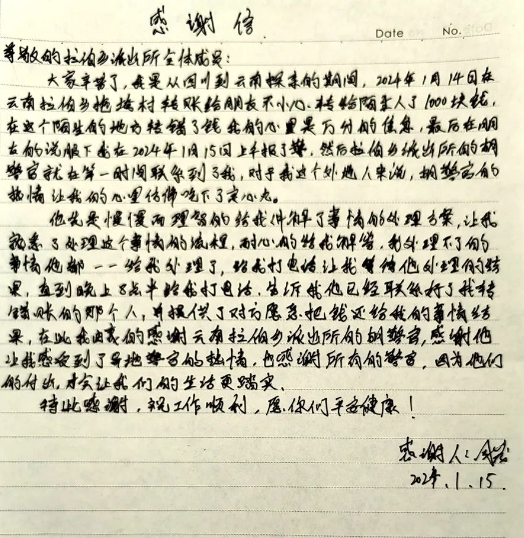 感谢信
Date No.
尊敬的拉伯乡派出所全体成员:
大家辛苦了,我是从四川到云南探亲的期间,2024年1月14日在
云南拉伯乡拖垮村转账给朋友不小心转给陌生人了1000块钱,
在这个陌生的地方转错了钱我的心里是万分的焦急,最后在朋
友的说服下我在2024年1月15日上午报了警,然后拉伯乡派出所的胡
警官就在第一时间联系到了我,对于我这个外地人来说,胡警官的
热情让我的心里仿佛吃下了定心丸。
他先是慢慢而理智的给我讲解了事情的处理方案,让我
熟悉了处理这个事情的流程,耐心的给我解答,我处理不了的
事情他都一一给我处理了,给我打电话让我等待他处理的结
果,直到晚上8点半给我打电话,告诉我他已经联系好了我转
错账的那个人,并提供了对方愿意把钱还给我的事情结
果,在此我由衷的感谢云南拉伯乡派出所的胡警官,感谢他
让我感受到了异地警官的热情,也感谢所有的警官,因为他们
的付出,才会让我们的生活更踏实。
特此感谢,祝工作顺利,愿你们平安健康!
感谢人:
2024.1.15.